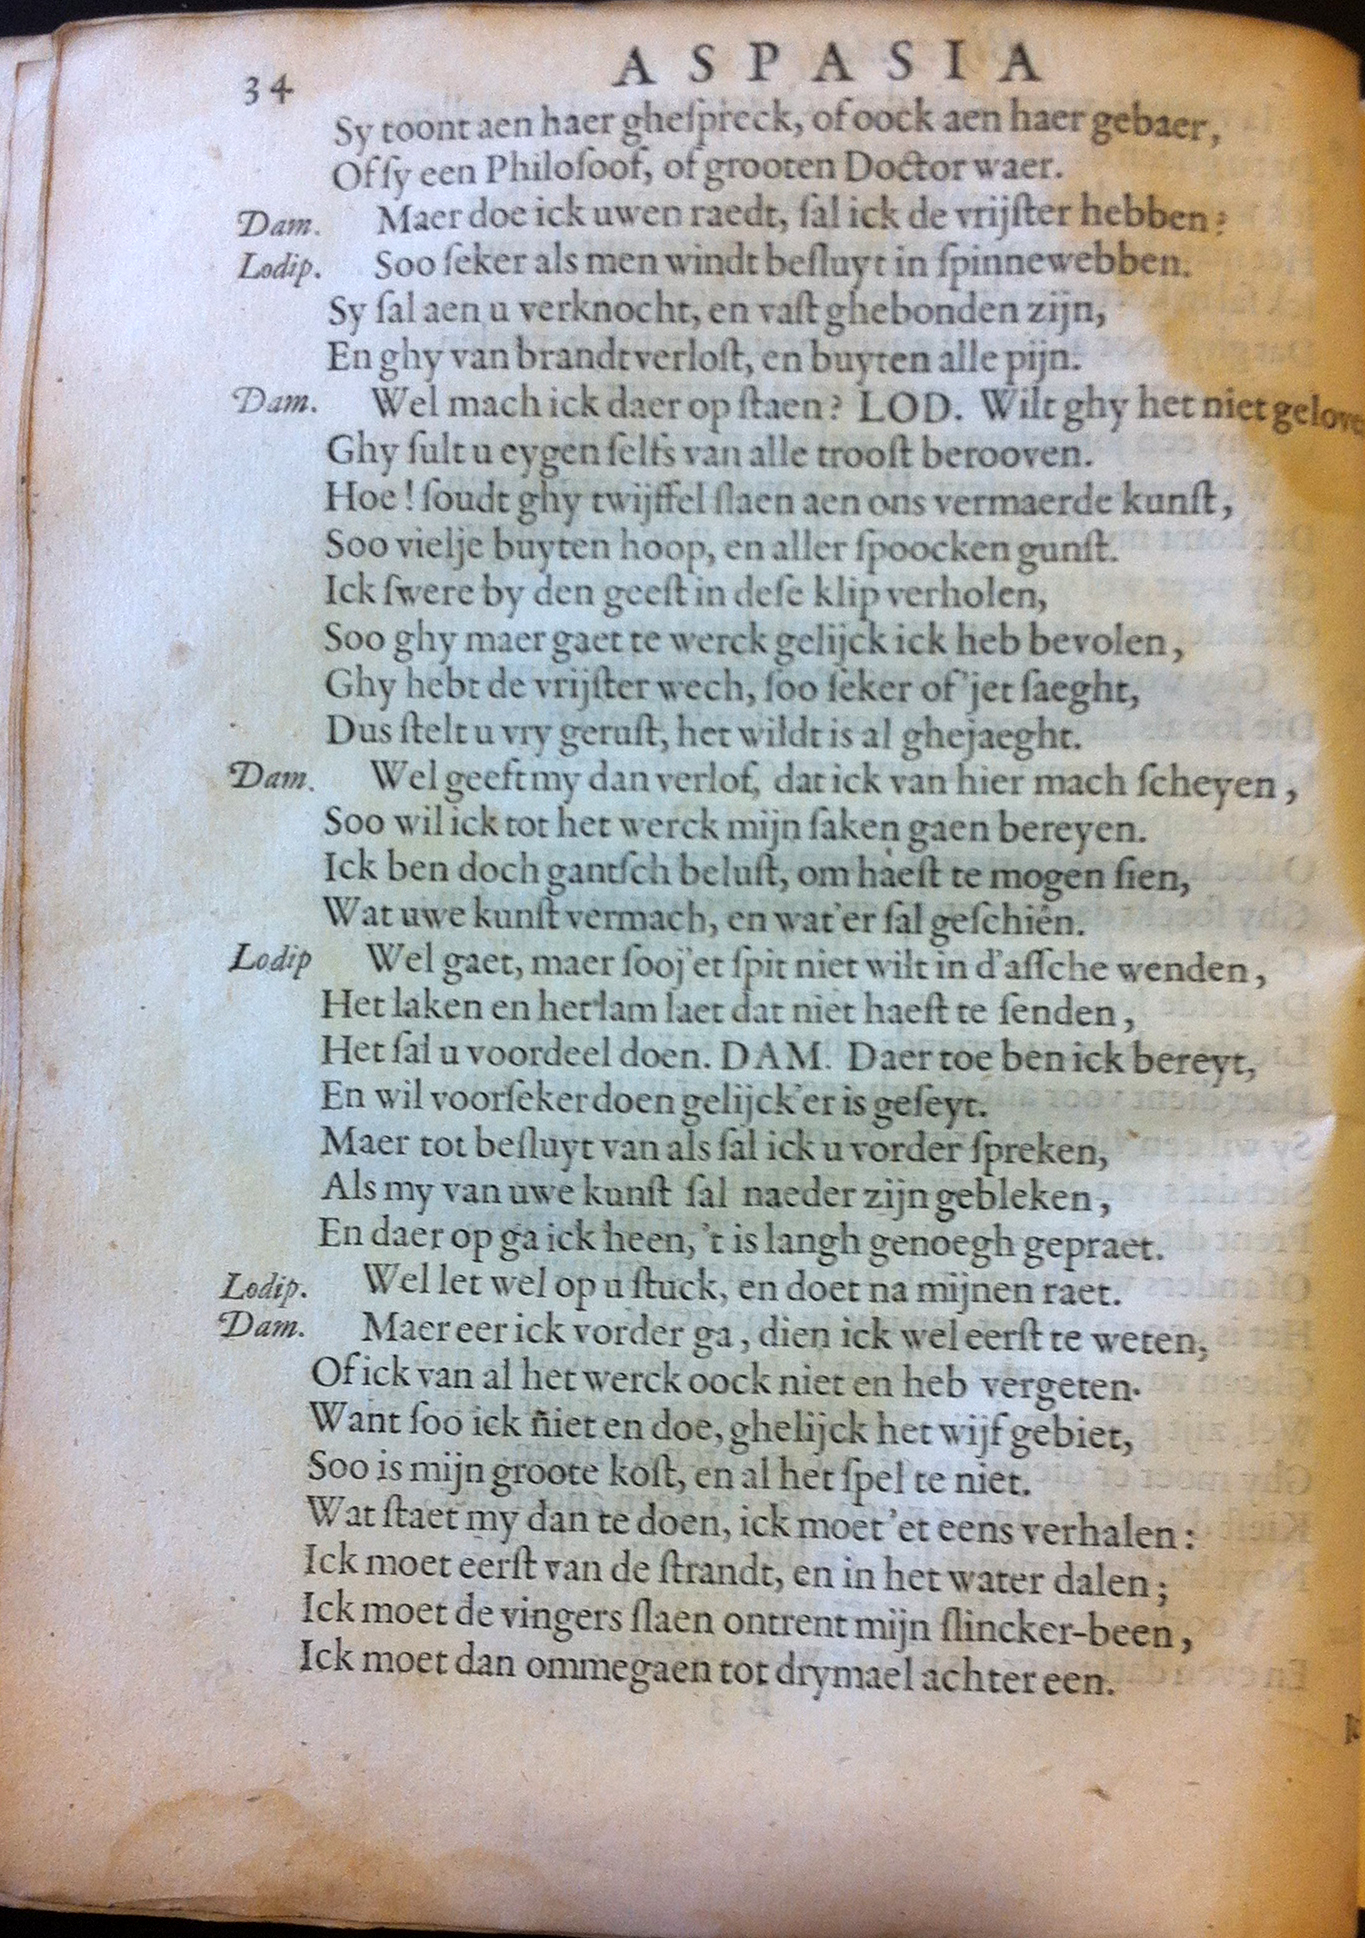 34 ASPASIA
Sy toont aen haer gheſpreck, of oock aen haer gebaer,
Of ſy een Philoſoof, of grooten Doctor waer.
Dam. Maer doe ick uwen raedt, ſal ick de vrijſter hebben?
Lodip. Soo ſeker als men windt beſluyt in ſpinnewebben.
Sy ſal aen u verknocht, en vaſt ghebonden zijn,
En ghy van brandt verloſt, en buyten alle pijn.
Dam. Wel mach ick daer op ſtaen? LOD. Wilt ghy het niet gelove
Ghy ſult u eygen ſelfs van alle trooſt berooven.
Hoe! ſoudt ghy twijffel ſlaen aen ons vermaerde kunſt,
Soo vielje buyten hoop, en aller ſpoocken gunſt.
Ick ſwere by den geeſt in deſe klip verholen,
Soo ghy maer gaet te werck gelijck ick heb bevolen,
Ghy hebt de vrijſter wech, ſoo ſeker of'jet ſaeght,
Dus ſtelt u vry geruſt, het wildt is al ghejaeght.
Dam. Wel geeft my dan verlof, dat ick van hier mach ſcheyen,
Soo wil ick tot het werck mijn ſaken gaen bereyen.
Ick ben doch gantſch beluſt, om haeſt te mogen ſien,
Wat uwe kunſt vermach, en wat'er ſal geſchiên.
Lodip Wel gaet, maer ſooj'et ſpit niet wilt in d'aſſche wenden,
Het laken en het lam laet dat niet haeſt te ſenden,
Het ſal u voordeel doen. DAM. Daer toe ben ick bereyt,
En wil voorſeker doen gelijck'er is geſeyt.
Maer tot beſluyt van als ſal ick u vorder ſpreken,
Als my van uwe kunſt ſal naeder zijn gebleken,
En daer op ga ick heen, 't is langh genoegh gepraet.
Lodip. Wel let wel op u ſtuck, en doet na mijnen raet.
Dam. Maer eer ick vorder ga, dien ick wel eerſt te weten,
Of ick van al het werck oock niet en heb vergeten.
Want ſoo ick niet en doe, ghelijck het wijf gebiet,
Soo is mijn groote koſt, en al het ſpel te niet.
Wat ſtaet my dan te doen, ick moet'et eens verhalen:
Ick moet eerſt van de ſtrandt, en in het water dalen;
Ick moet de vingers ſlaen ontrent mijn ſlincker-been,
Ick moet dan ommegaen tot drymael achter een.